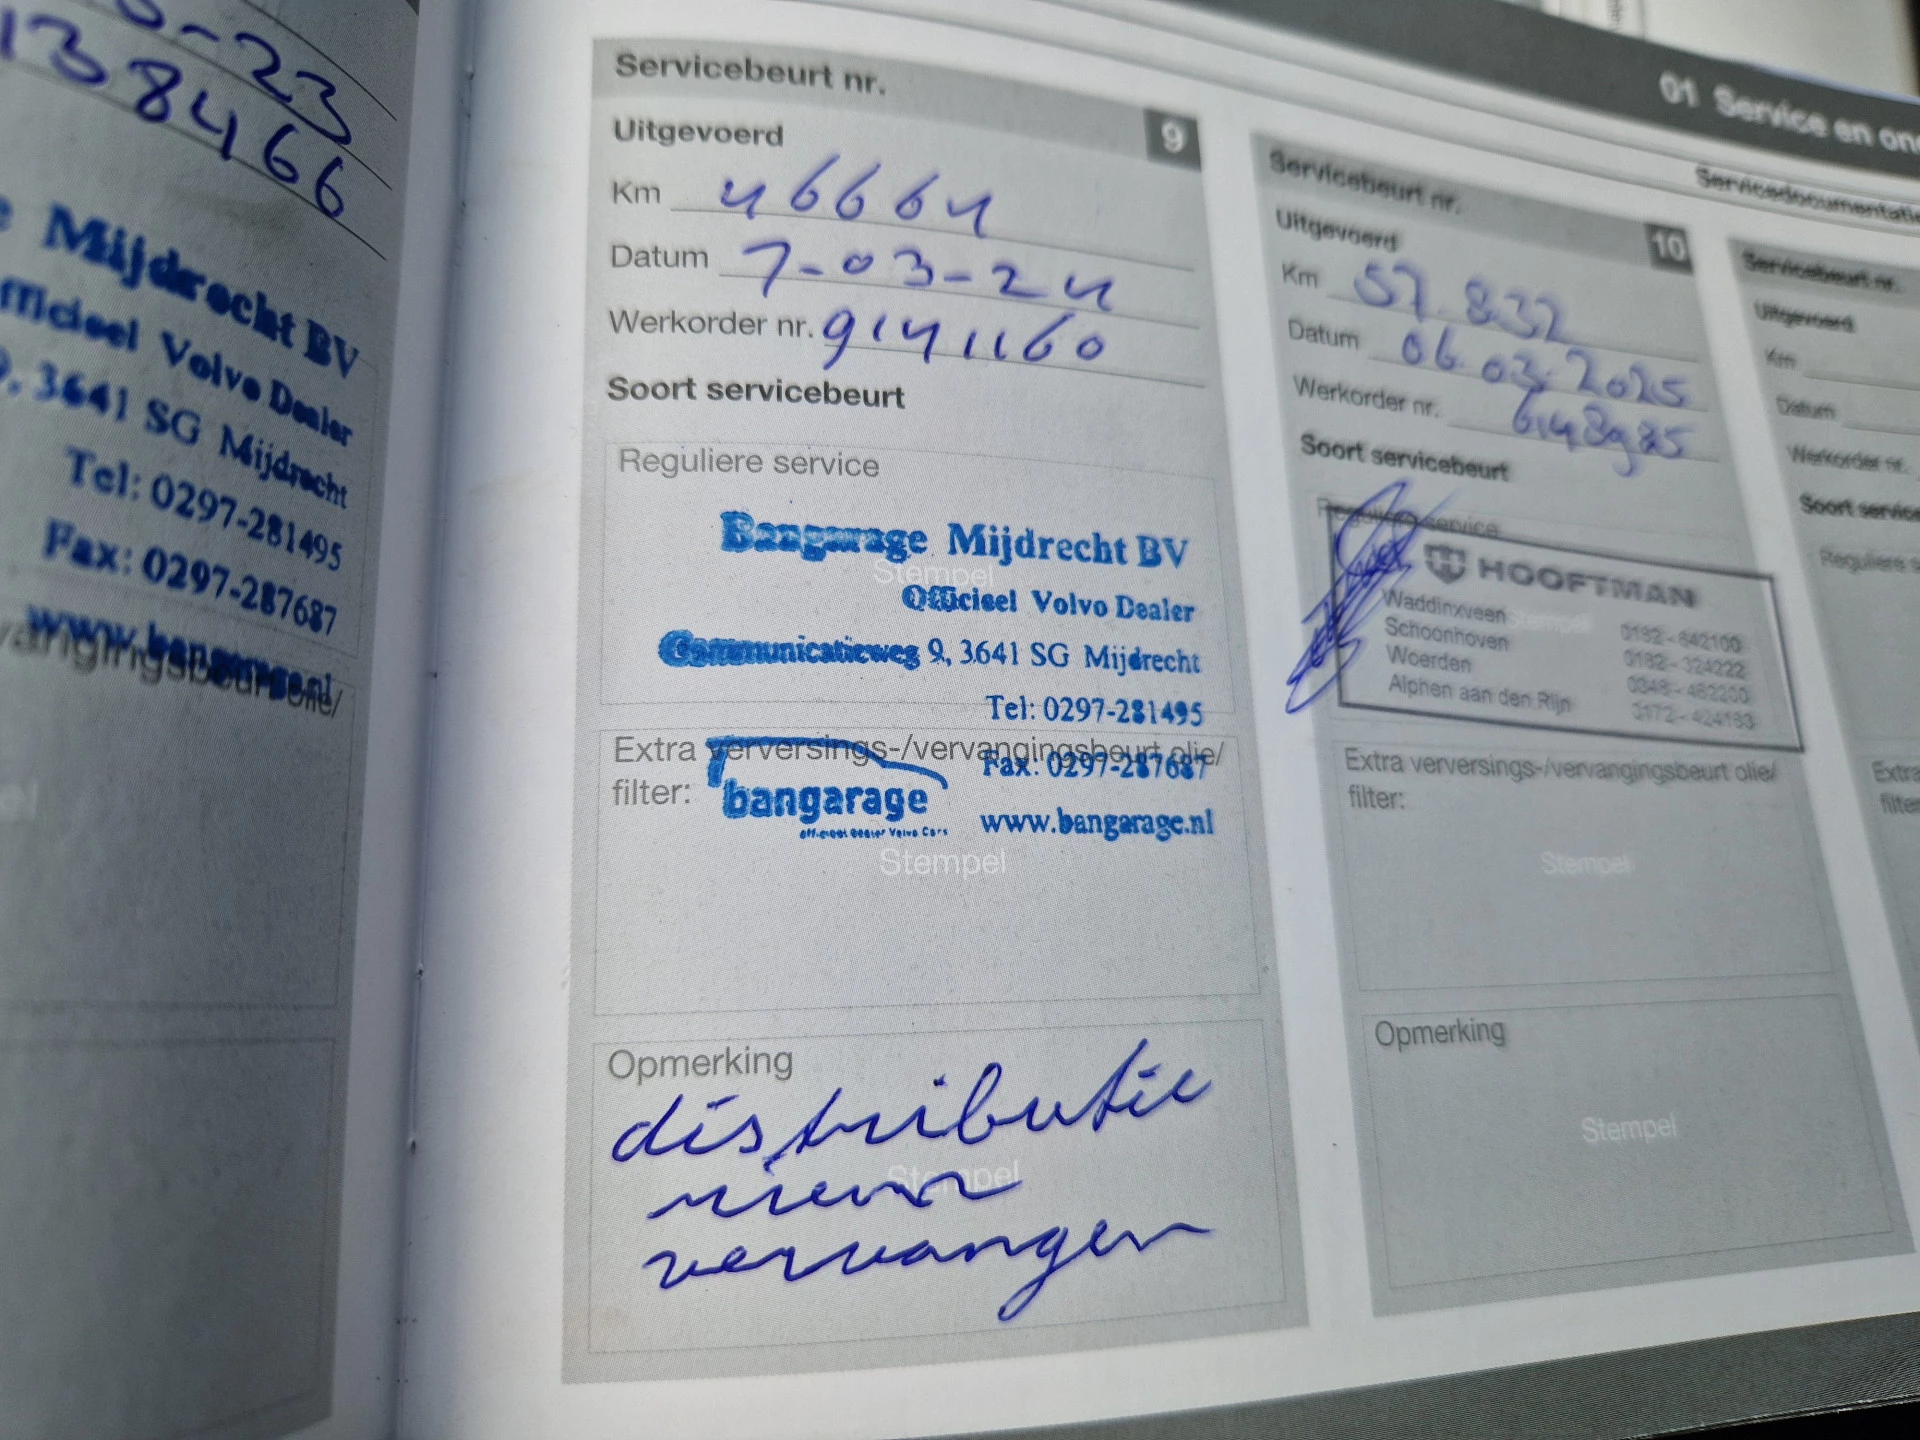 -23
138466
Mijdrecht BV
fficieel Volvo Dealer
9, 3641 SG Mijdrecht
Tel: 0297-281495
Fax: 0297-287687
www.bangarage.nl
vangingsbeurt olie/
Servicebeurt nr.
9
Uitgevoerd
Km 46664
Datum 7-03-24
Werkorder nr. 9141160
Soort servicebeurt
Reguliere service
Stempel
Bangarage Mijdrecht BV
Officieel Volvo Dealer
Communicatieweg 9, 3641 SG Mijdrecht
Tel: 0297-281495
Fax: 0297-287687
www.bangarage.nl
Extra verversings-/vervangingsbeurt olie/
filter:
bangarage
officieel dealer Volvo Cars
Stempel
Opmerking
Stempel
distributie
riem
vervangen
01 Service en ond
Servicedocumentatie
Servicebeurt nr.
10
Uitgevoerd
Km 57.832
Datum 06.03.2025
Werkorder nr.
Soort servicebeurt
Reguliere service
Stempel
HOOFTMAN
Waddinxveen 0182-642100
Schoonhoven 0182-324222
Woerden 0348-482200
Alphen aan den Rijn 0172-424183
Extra verversings-/vervangingsbeurt olie/
filter:
Stempel
Opmerking
Stempel
Servicebeurt nr.
Uitgevoerd
Km
Datum
Werkorder nr.
Soort service
Reguliere s
Extra
filter